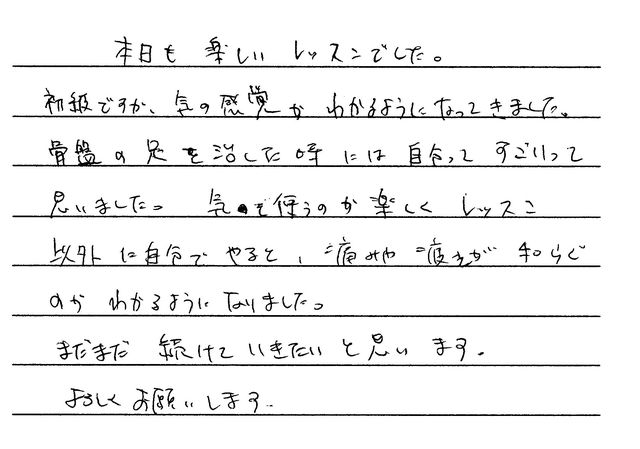 本日も 楽しい レッスンでした。
初級ですが、気の感覚が わかるようになってきました。
骨盤の足を治した時には 自分って すごいって
思いました。 気を使うのが楽しく レッスン
以外に自分で やると、痛みや 疲えが 和らぐ
のが わかるように なりました。
まだまだ 続けて いきたいと思い ます。
よろしく お願いします。